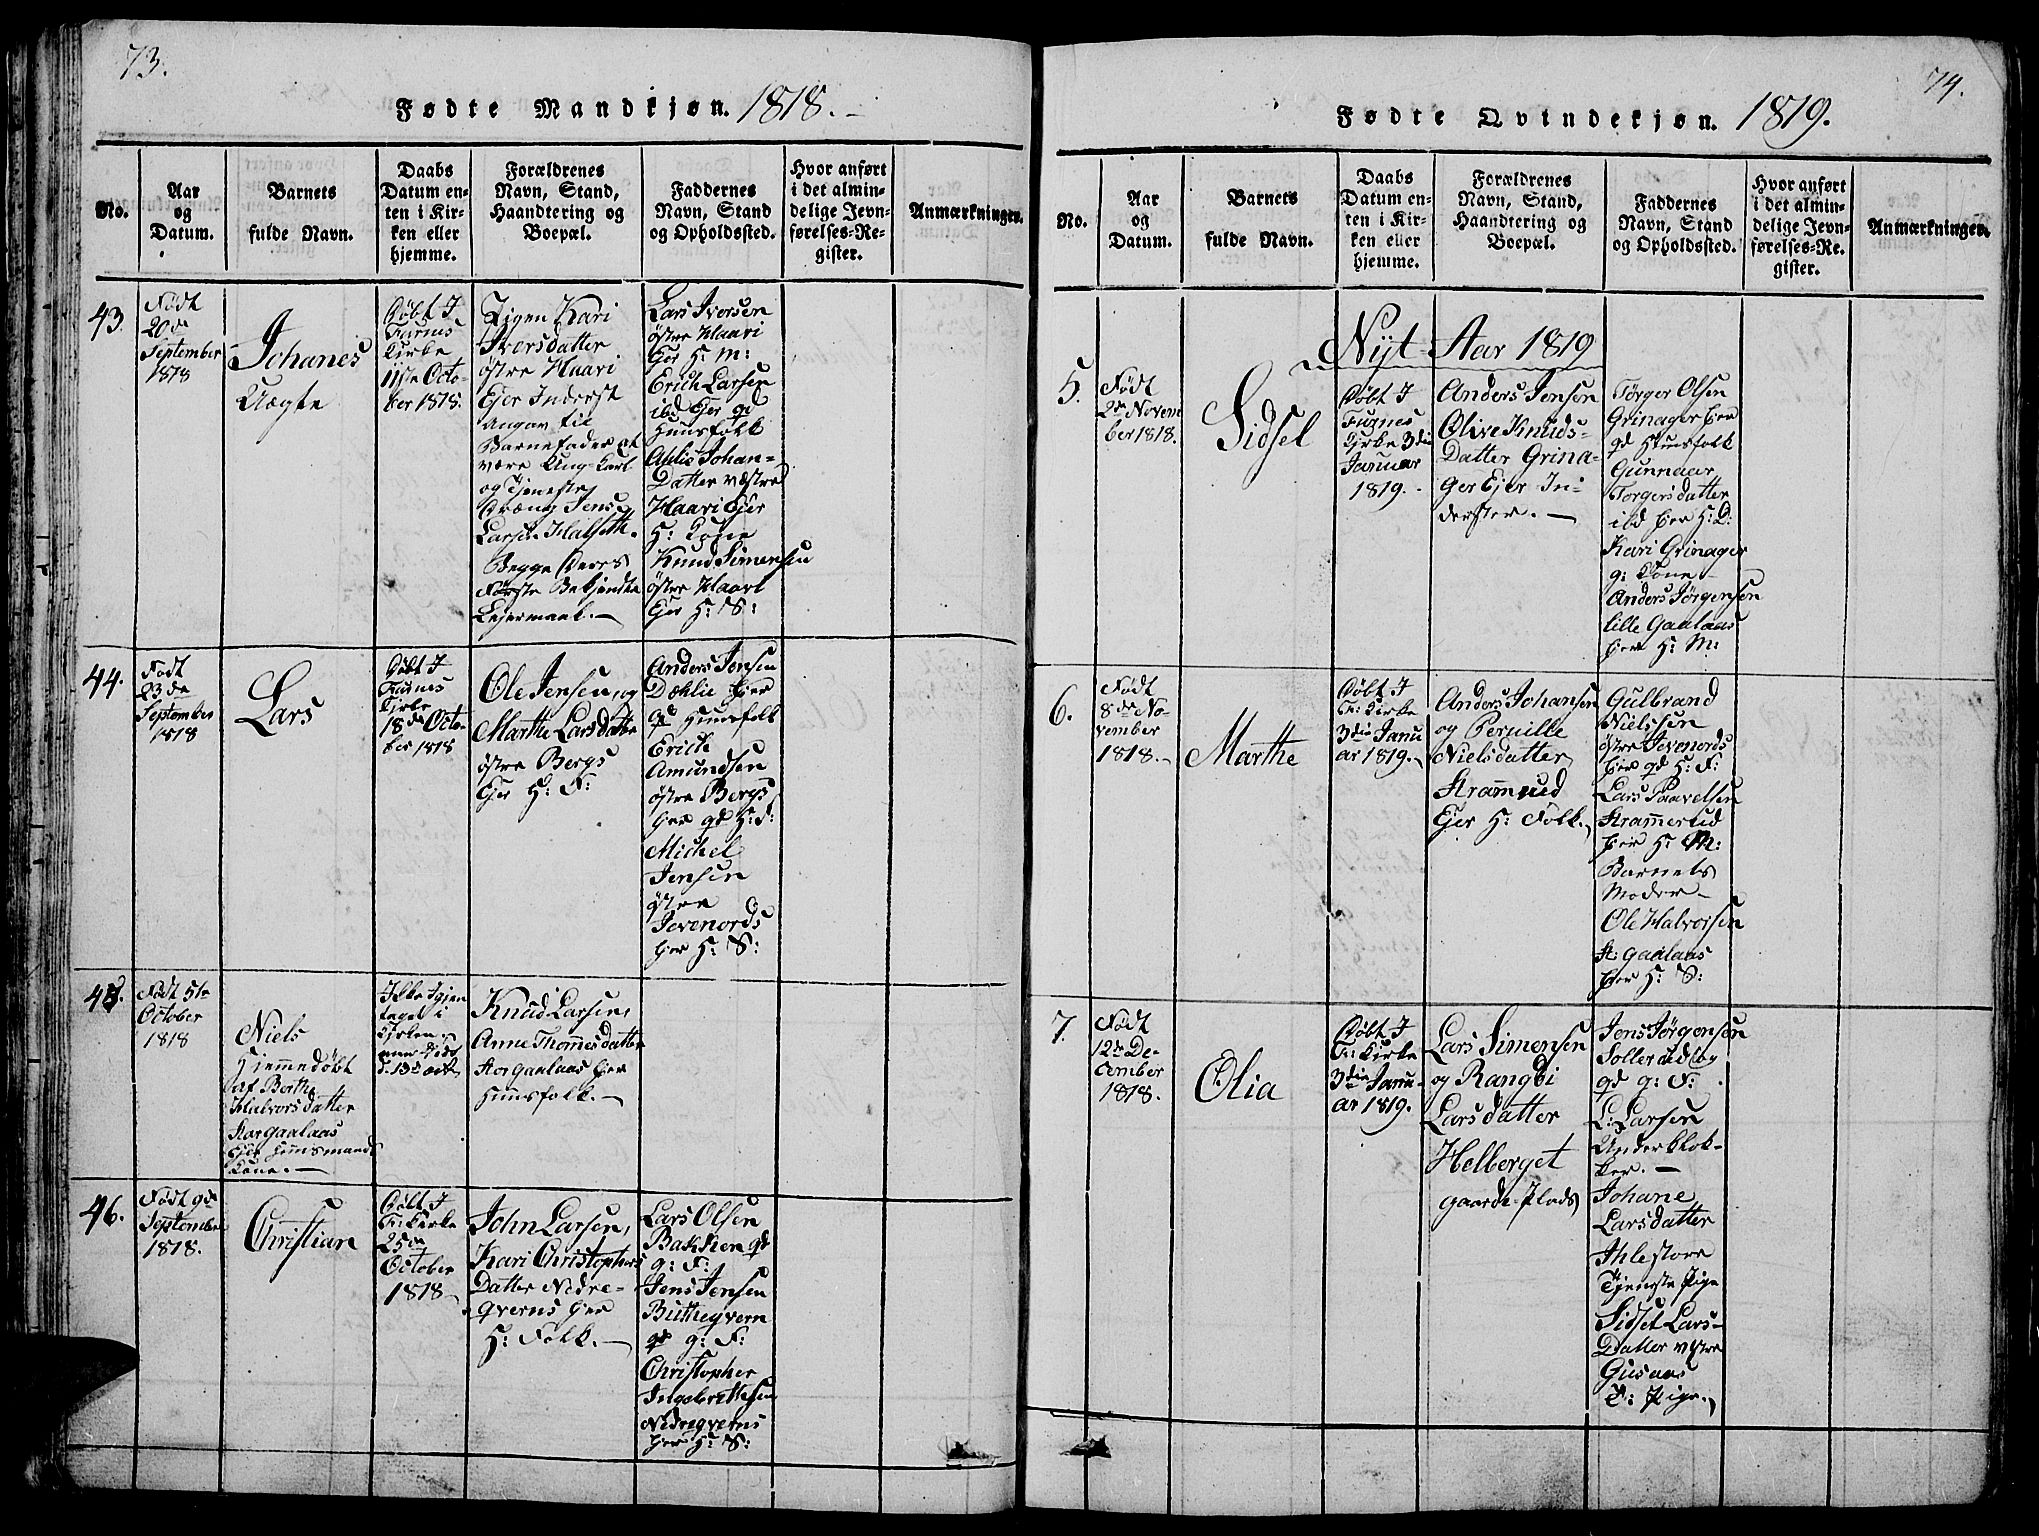 73.
Fødte Mandkjøn. 1818.
No.
Aar
og
Datum.
Barnets
fulde Navn.
Daabs
Datum en-
ten i Kir-
ken eller
hjemme.
Forældrenes
Navn, Stand,
Haandtering og
Boepæl.
Faddernes
Navn, Stand
og Opholdssted.
Hvor anført
i det almin-
delige Jevn-
førelses-Re-
gister.
Anmærkninger.
43.
Født
20de
September
1818
Johanes
Uægte
Døbt I
Furnes
Kirke
11te Octo-
ber 1818.
Pigen Kari
Iversdatter
østre Haari
Ejer Inderst
angav til
Barnefader at
være Ung-karl
og Tjeneste
Dræng Jens
Larsen Halseth.
Begge Deres
Første Bekjendte
Lejermaal.
Lars Iversen
østre Haari
Ejer H: M:
Erich Larsen
ibd Ejer gd
Huusfolk
Johan-
Datter væstre
Haari Ejer
H: Kone
Knud Simensen
østre Haari
Ejer H: S:
44.
Født
23de
September
1818
Lars
Døbt I
Furnes
Kirke
18de Octo-
ber 1818
Ole Jensen og
Marthe Larsdatter
østre Bergs
Ejer H: F:
Anders Jensen
Dæhlie Ejer
gd Huusfolk
Erich
Amundsen
østre Bergs
Ejer gd H: F:
Michel
Jensen
østre
Jevenords
Ejer H: S:
45.
Født 5te
October
1818
Niels
Hjemmedøbt
af Berthe
Halvorsdatter
Storgaalaas
Ejer Huusmands
Kone.
Ikke Igjen
taget i
Kirken
Knud Larsen,
Anne Thommesdatter
Storgaalaas Ejer
Huusfolk.
46.
Født 9de
September
1818.
Christian
Døbt I
F: Kirke
25de
October
1818
John Larsen,
Kari Christophers
Datter Nedre-
qverns Ejer
H: Folk.
Lars Olsen
Bakken gd
g: F:
Jens Jensen
Butheqvern
gd g: F:
Christopher
Ingebrethsen
Nedreqverns
Ejer H: S:
74.
Fødte Qvindekjøn. 1819.
No.
Aar
og
Datum.
Barnets
fulde Navn.
Daabs
Datum en-
ten i Kir-
ken eller
hjemme.
Forældrenes
Navn, Stand,
Haandtering og
Boepæl.
Faddernes
Navn, Stand
og Opholdssted.
Hvor anført
i det almin-
delige Jevn-
førelses-Re-
gister.
Anmærkninger.
Nyt Aar 1819
5.
Født
2de Novem
ber 1818.
Sidsel
Døbt I
Furnes
Kirke 3die
Januar
1819.
Anders Jensen
Olive Knuds-
Datter Grina-
ger Ejer In-
derster.
Tørger Olsen
Grinager Ejer
gd Huusfolk
Gunnaar
Torgersdatter
ibd Ejer H: D:
Kari Grinager
g: Kone
Anders Jørgensen
lille Gaalaas
Ejer H: M:
6.
Født
8de No-
vember
1818.
Marthe
Døbt I
F: Kirke
3die Janu
ar 1819.
Anders Johansen
og Pernille
Nielsdatter
Krammerud
Ejer H: Folk.
Gulbrand
Nielssen
østre Jevenords
Ejer gd H: F:
Lars Paavelsen
Krammerud
Ejer H: M:
Barnets
Moder
Ole Halvorsen
St gaalaas
Ejer H: S:
7.
Født
12te De-
cember
1818.
Olia
Døbt I
F: Kirke
3die Janu-
ar 1819.
Lars Simensen
og Rangdi
Larsdatter
Helberget
gaarde-Plads
Jens Jørgensen
Sollerud og
gd g: F:
L: Larsen
Underklok-
ker.
Johane
Larsdatter
Ihlestore
Tjeneste Pige
Sidsel Lars-
Datter vestre
Gusaas
T: Pige.